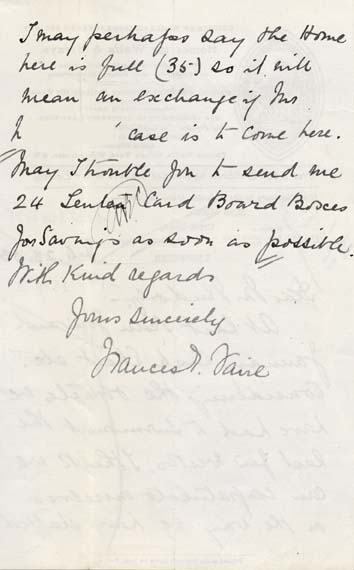 I may perhaps say the Home
here is full (35) so it will
mean an exchange if Mrs
h      ' case is to come here.
May I trouble you to send me
24 Lenten Card Board Boxes
for Savings as soon as possible.
With Kind regards
Yours sincerely
Frances E. Faire